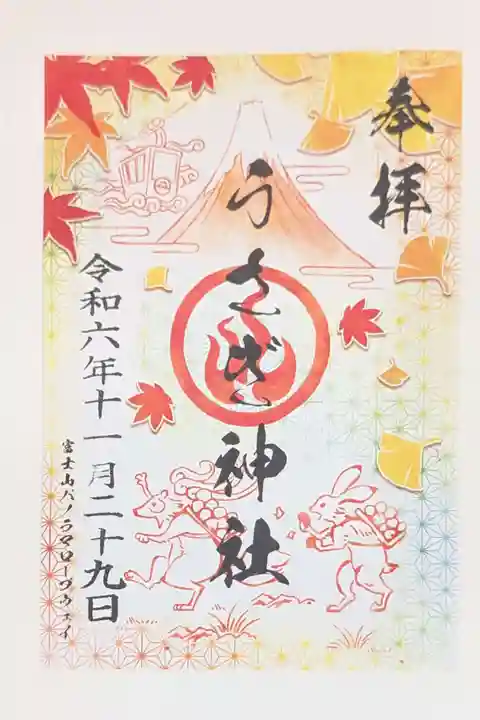 奉拝
うさぎ神社
令和六年十一月二十九日
富士山パノラマロープウェイ